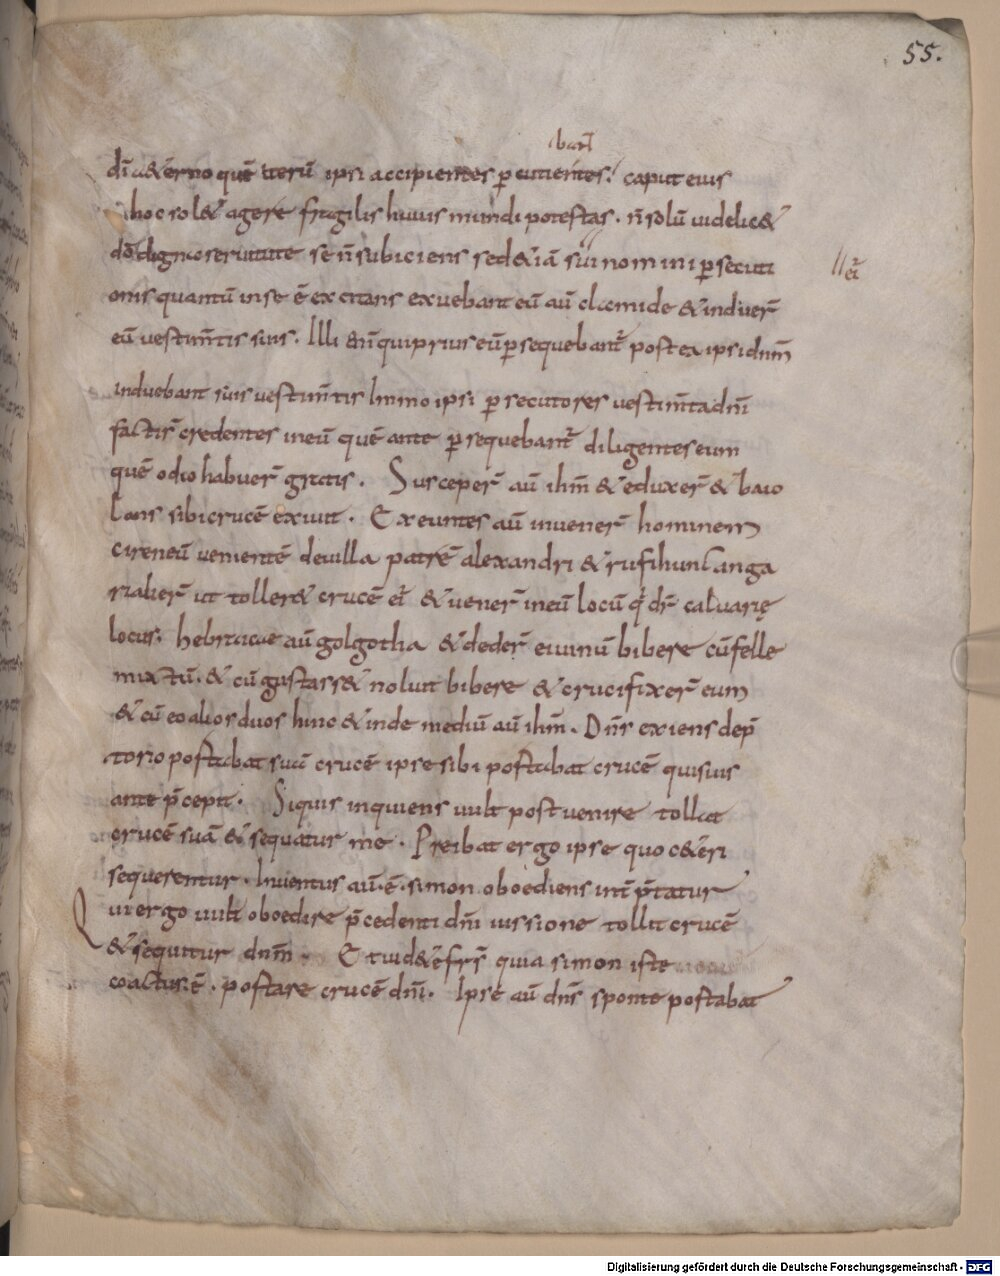 55.
bant
dñi a&erno quē iterū ipsi accipientes ꝑcutientes. caput eius
hoc sol& agere fragilis huius mundi potestas. ñ solū uidelic&
dō digna seruitute se ñ subiciens sed &iā sui nomini ꝑsecuti
ei
onis quantū in se ē excitans exuebant eū aū clamide & induer̄
eū vestim̄tis suis. Illi &n̄ qui prius eū ꝑsequebant̄ postea ipsi dnm̄
induebant suis vestim̄tis Immo ipsi ꝑsecutores vestim̄ta dn̄i
facti s̄ credentes in eū quē ante ꝑsequebant̄ diligentes eum
quē odio habuer̄ gratis. Susceper̄ aū ihm̄ & eduxer̄ & baio
lans sibi crucē exiuit. Exeuntes aū inuener̄ hominem
cireneū venientē de uilla patrē alexandri & rufi hunc anga
riauer̄ ut toller& crucē ei' & uener̄ in eū locū q' dr̄ caluarię
locus. hebraice aū golgotha & deder̄ ei uinū bibere cū felle
mixtū. & cū gustass& noluit bibere & crucifixer̄ eum
& cū eo alios duos hinc & inde mediū aū ihm̄. Dn̄s exiens de p̄
torio portabat suā crucē ipse sibi portabat crucē qui suis
ante p̄cepit. Siquis inquiens uult post venire tollat
crucē suā & sequatur me. Preibat ergo ipse quo c&eri
sequerentur. Inuentus aū. ē. simon oboediens int̄p̄tatur
Qui ergo uult oboedire p̄cedenti dn̄i iussione tollit crucē
& sequitur dnm̄. Et uid&e fr̄s quia simon iste
coactus. ē. portare crucē dn̄i. Ipse aū dn̄s sponte portabat
Digitalisierung gefördert durch die Deutsche Forschungsgemeinschaft - DFG